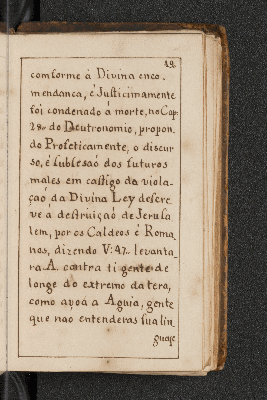 19.
comforme á Divina enco.
mendanca, é Justicimamente
foi condenado á morte, no Cap:
28.. do Deutronomio, propon.
do Profeticamente, o discur
so, é sublesaó dos futuros
males em castigo da viola-
çaó, da Divina Ley descre
ve á destruiçaó de Jerusa
lem, por os Caldeos é Roma
nos, dizendo V: 47.. levanta-
ra A. contra ti gente de
longe do extremo da tera,
como avoá a Aguia, gente
que naó entenderas sua lin
guaje